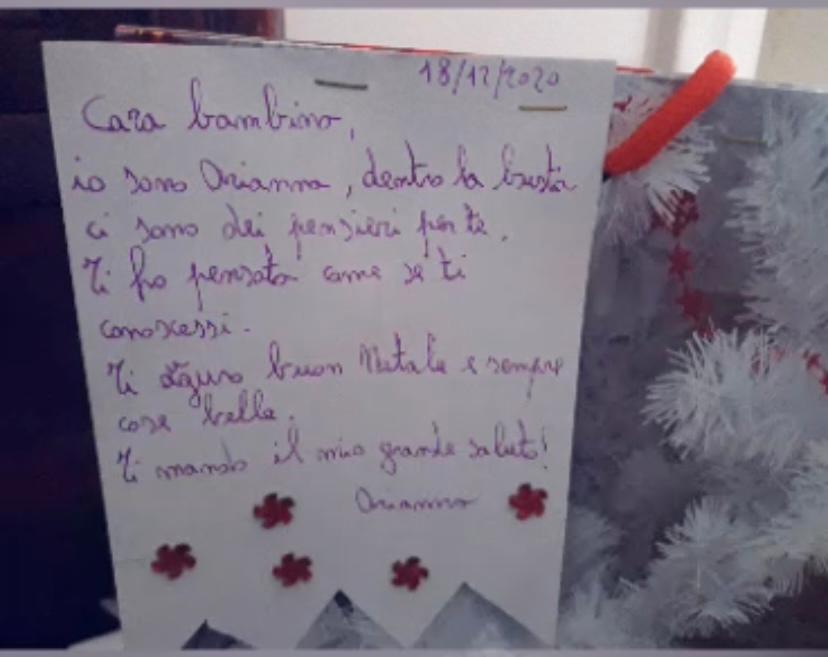 18/12/2020
Cara bambino,
io sono Arianna, dentro la busta
ci sono dei pensieri per te.
Ti ho pensato come se ti
conoscessi.
Ti auguro buon Natale e sempre
cose belle.
Ti mando il mio grande saluto!
Arianna